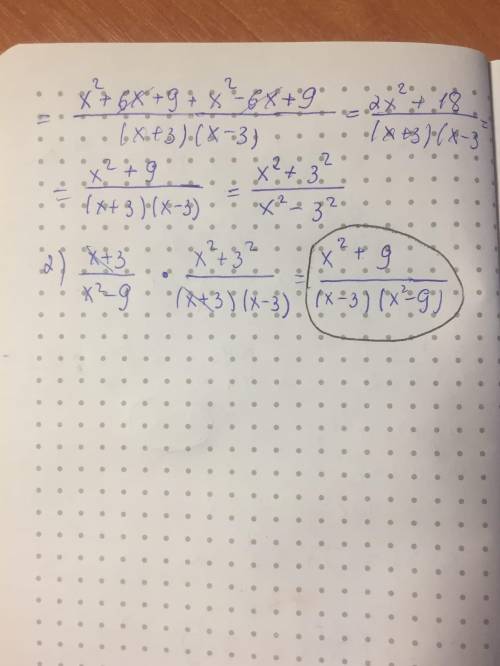 = (x² + 6x + 9 + x² - 6x + 9) / ((x+3)(x-3)) = (2x² + 18) / ((x+3)(x-3 =
= (x² + 9) / ((x+3)(x-3)) = (x² + 3²) / (x² - 3²)
2) (x+3) / (x²-9) · (x²+3²) / ((x+3)(x-3)) = (x² + 9) / ((x-3)(x²-9))